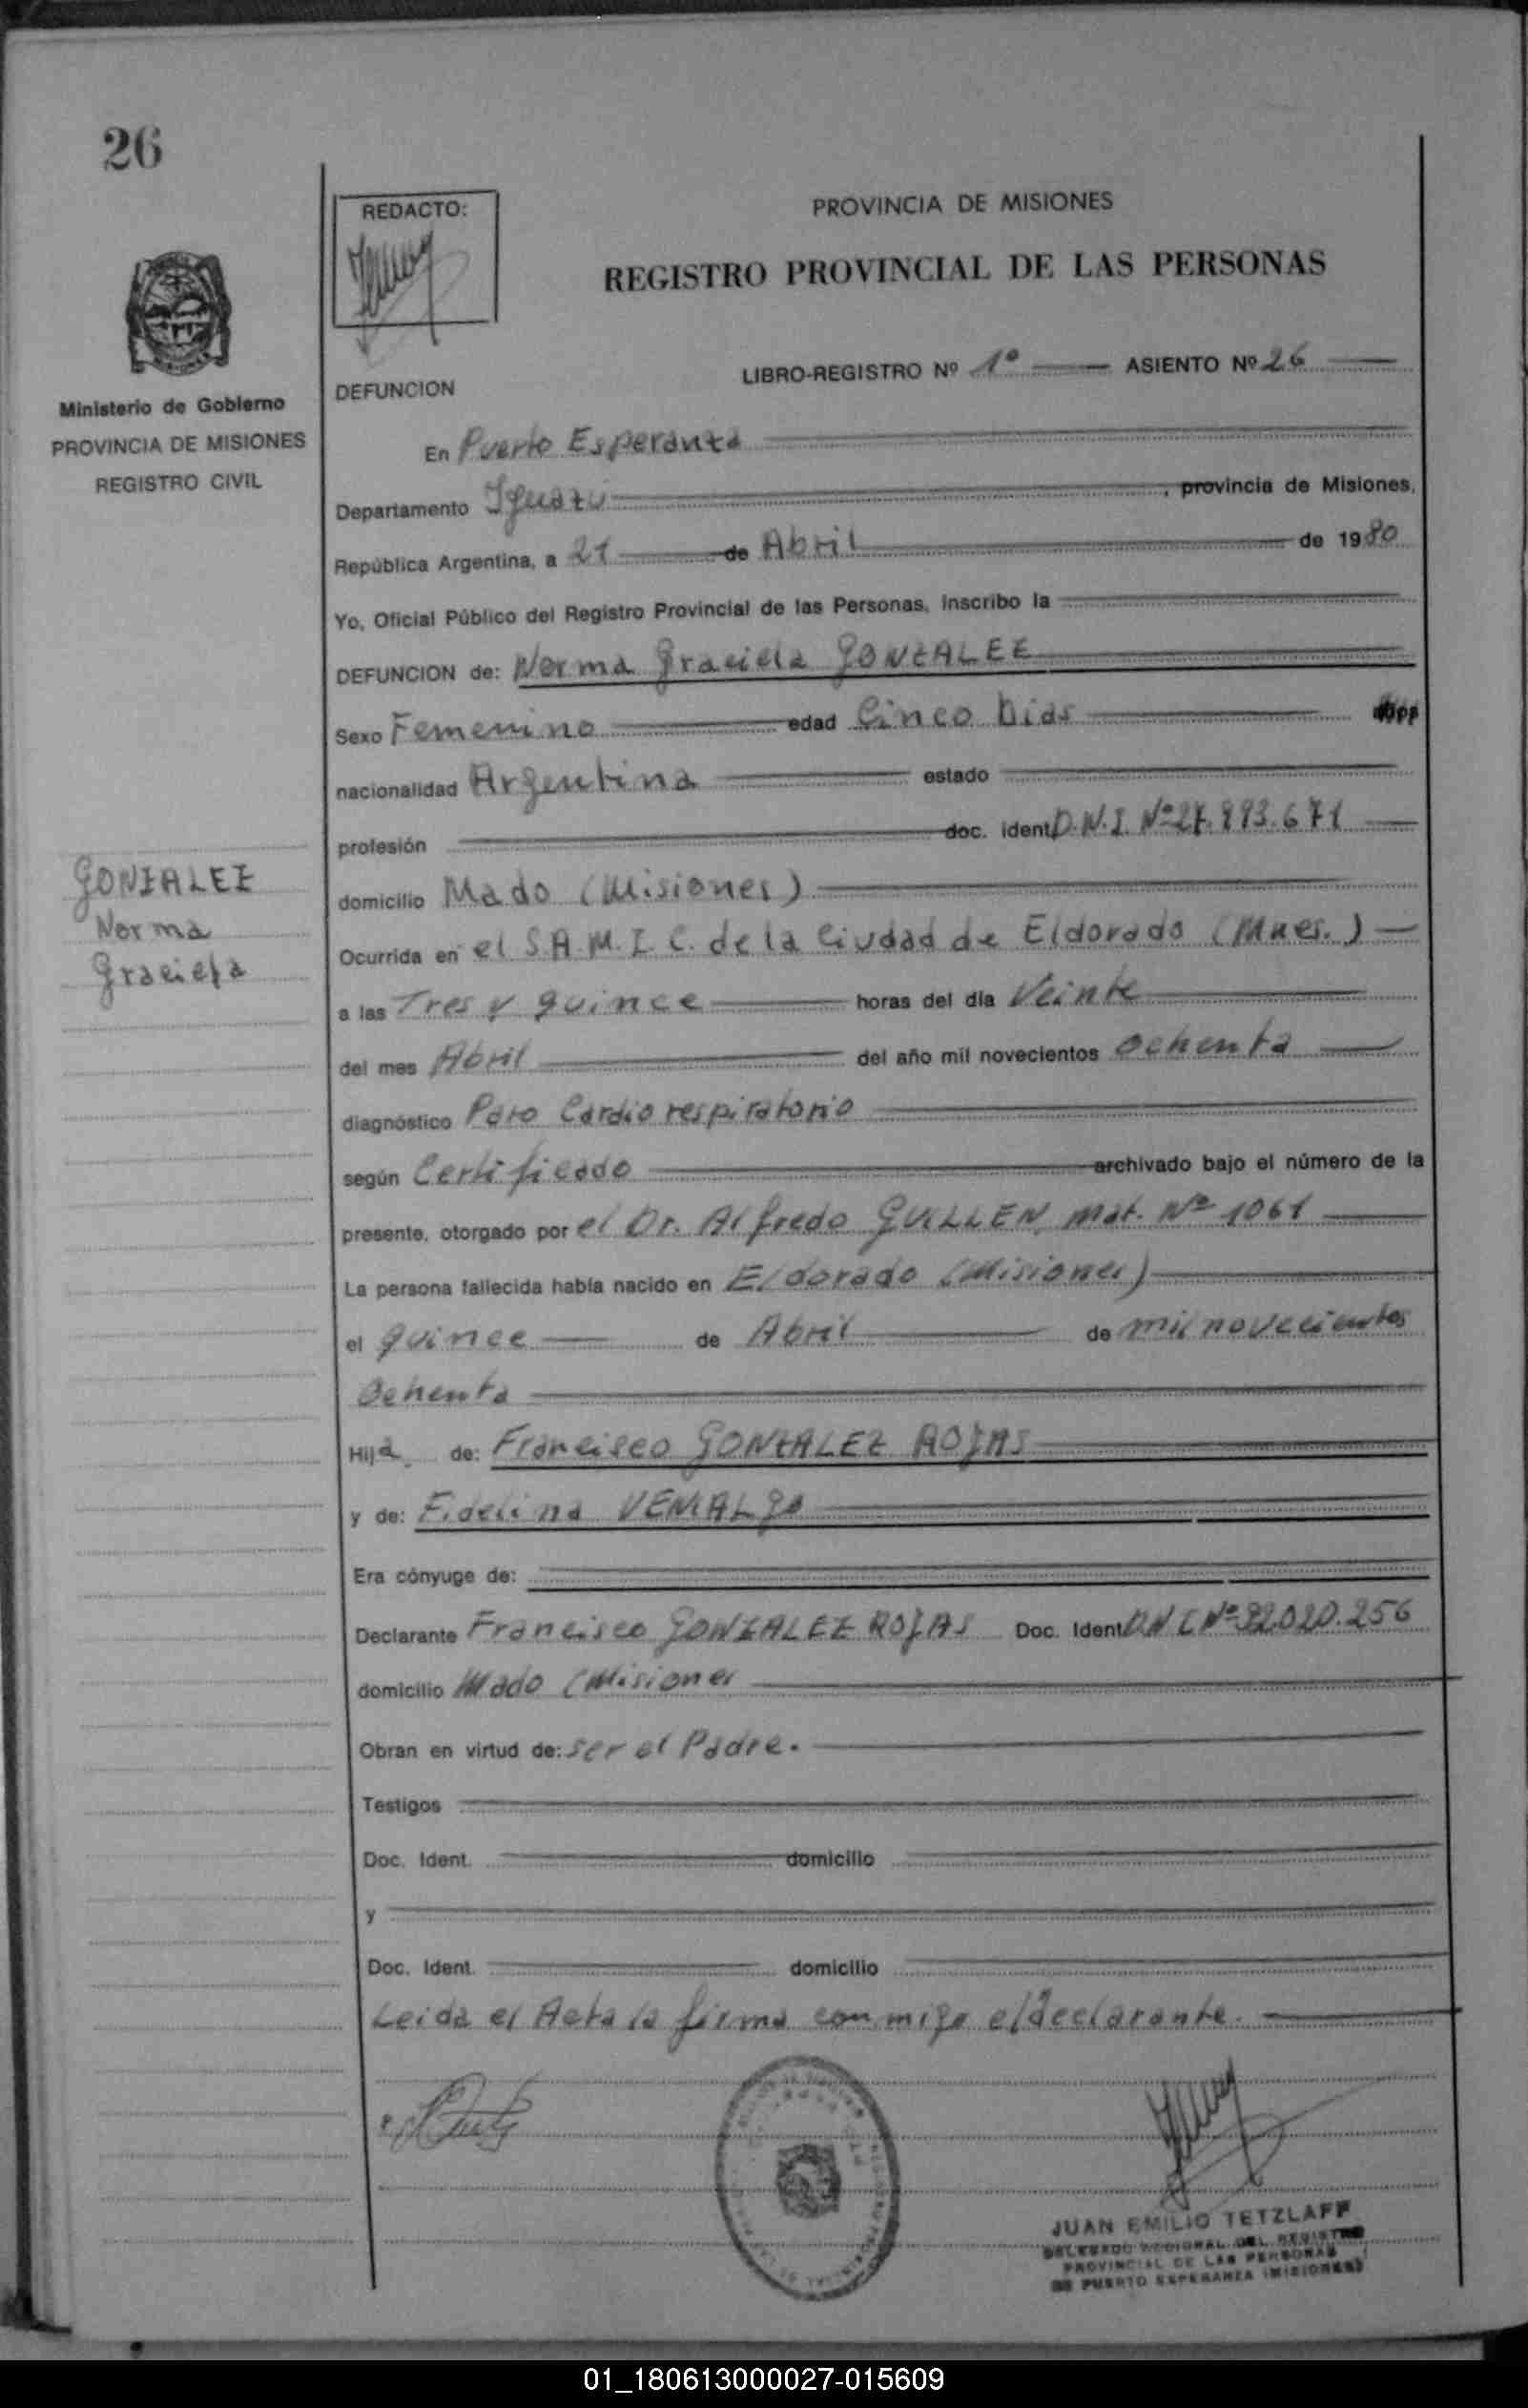 26
REDACTO:
PROVINCIA DE MISIONES
REGISTRO PROVINCIAL DE LAS PERSONAS
Ministerio de Gobierno
PROVINCIA DE MISIONES
REGISTRO CIVIL
DEFUNCION
LIBRO-REGISTRO Nº 1º ASIENTO Nº 26
En Puerto Esperanza
Departamento Iguazú, provincia de Misiones,
República Argentina, a 21 de Abril de 1980
Yo, Oficial Público del Registro Provincial de las Personas, inscribo la
DEFUNCION de: Norma Graciela GONZALEZ
Sexo Femenino edad Cinco Dias
nacionalidad Argentina estado
profesión doc. ident D.N.I. Nº 27.893.671
GONZALEZ
Norma
Graciela
domicilio Mado (Misiones)
Ocurrida en el S.A.M.I.C. de la Ciudad de Eldorado (Mnes.)
a las Tres y quince horas del día Veinte
del mes Abril del año mil novecientos ochenta
diagnóstico Paro Cardio respiratorio
según Certificado archivado bajo el número de la
presente, otorgado por el Dr. Alfredo GUILLEN, Mat. Nº 1061
La persona fallecida había nacido en Eldorado (Misiones)
el quince de Abril de mil novecientos
Ochenta
Hija de: Francisco GONZALEZ ROJAS
y de: Fidelina VENIALGO
Era cónyuge de:
Declarante Francisco GONZALEZ ROJAS Doc. Ident D.N.I Nº 92.020.256
domicilio Mado (Misiones
Obran en virtud de: ser el Padre.
Testigos
Doc. Ident. domicilio
y
Doc. Ident. domicilio
Leida el Acta la firma conmigo el declarante.
JUAN EMILIO TETZLAFF
DELEGADO REGIONAL DEL REGISTRO
PROVINCIAL DE LAS PERSONAS
DE PUERTO ESPERANZA (MISIONES)
01_180613000027-015609